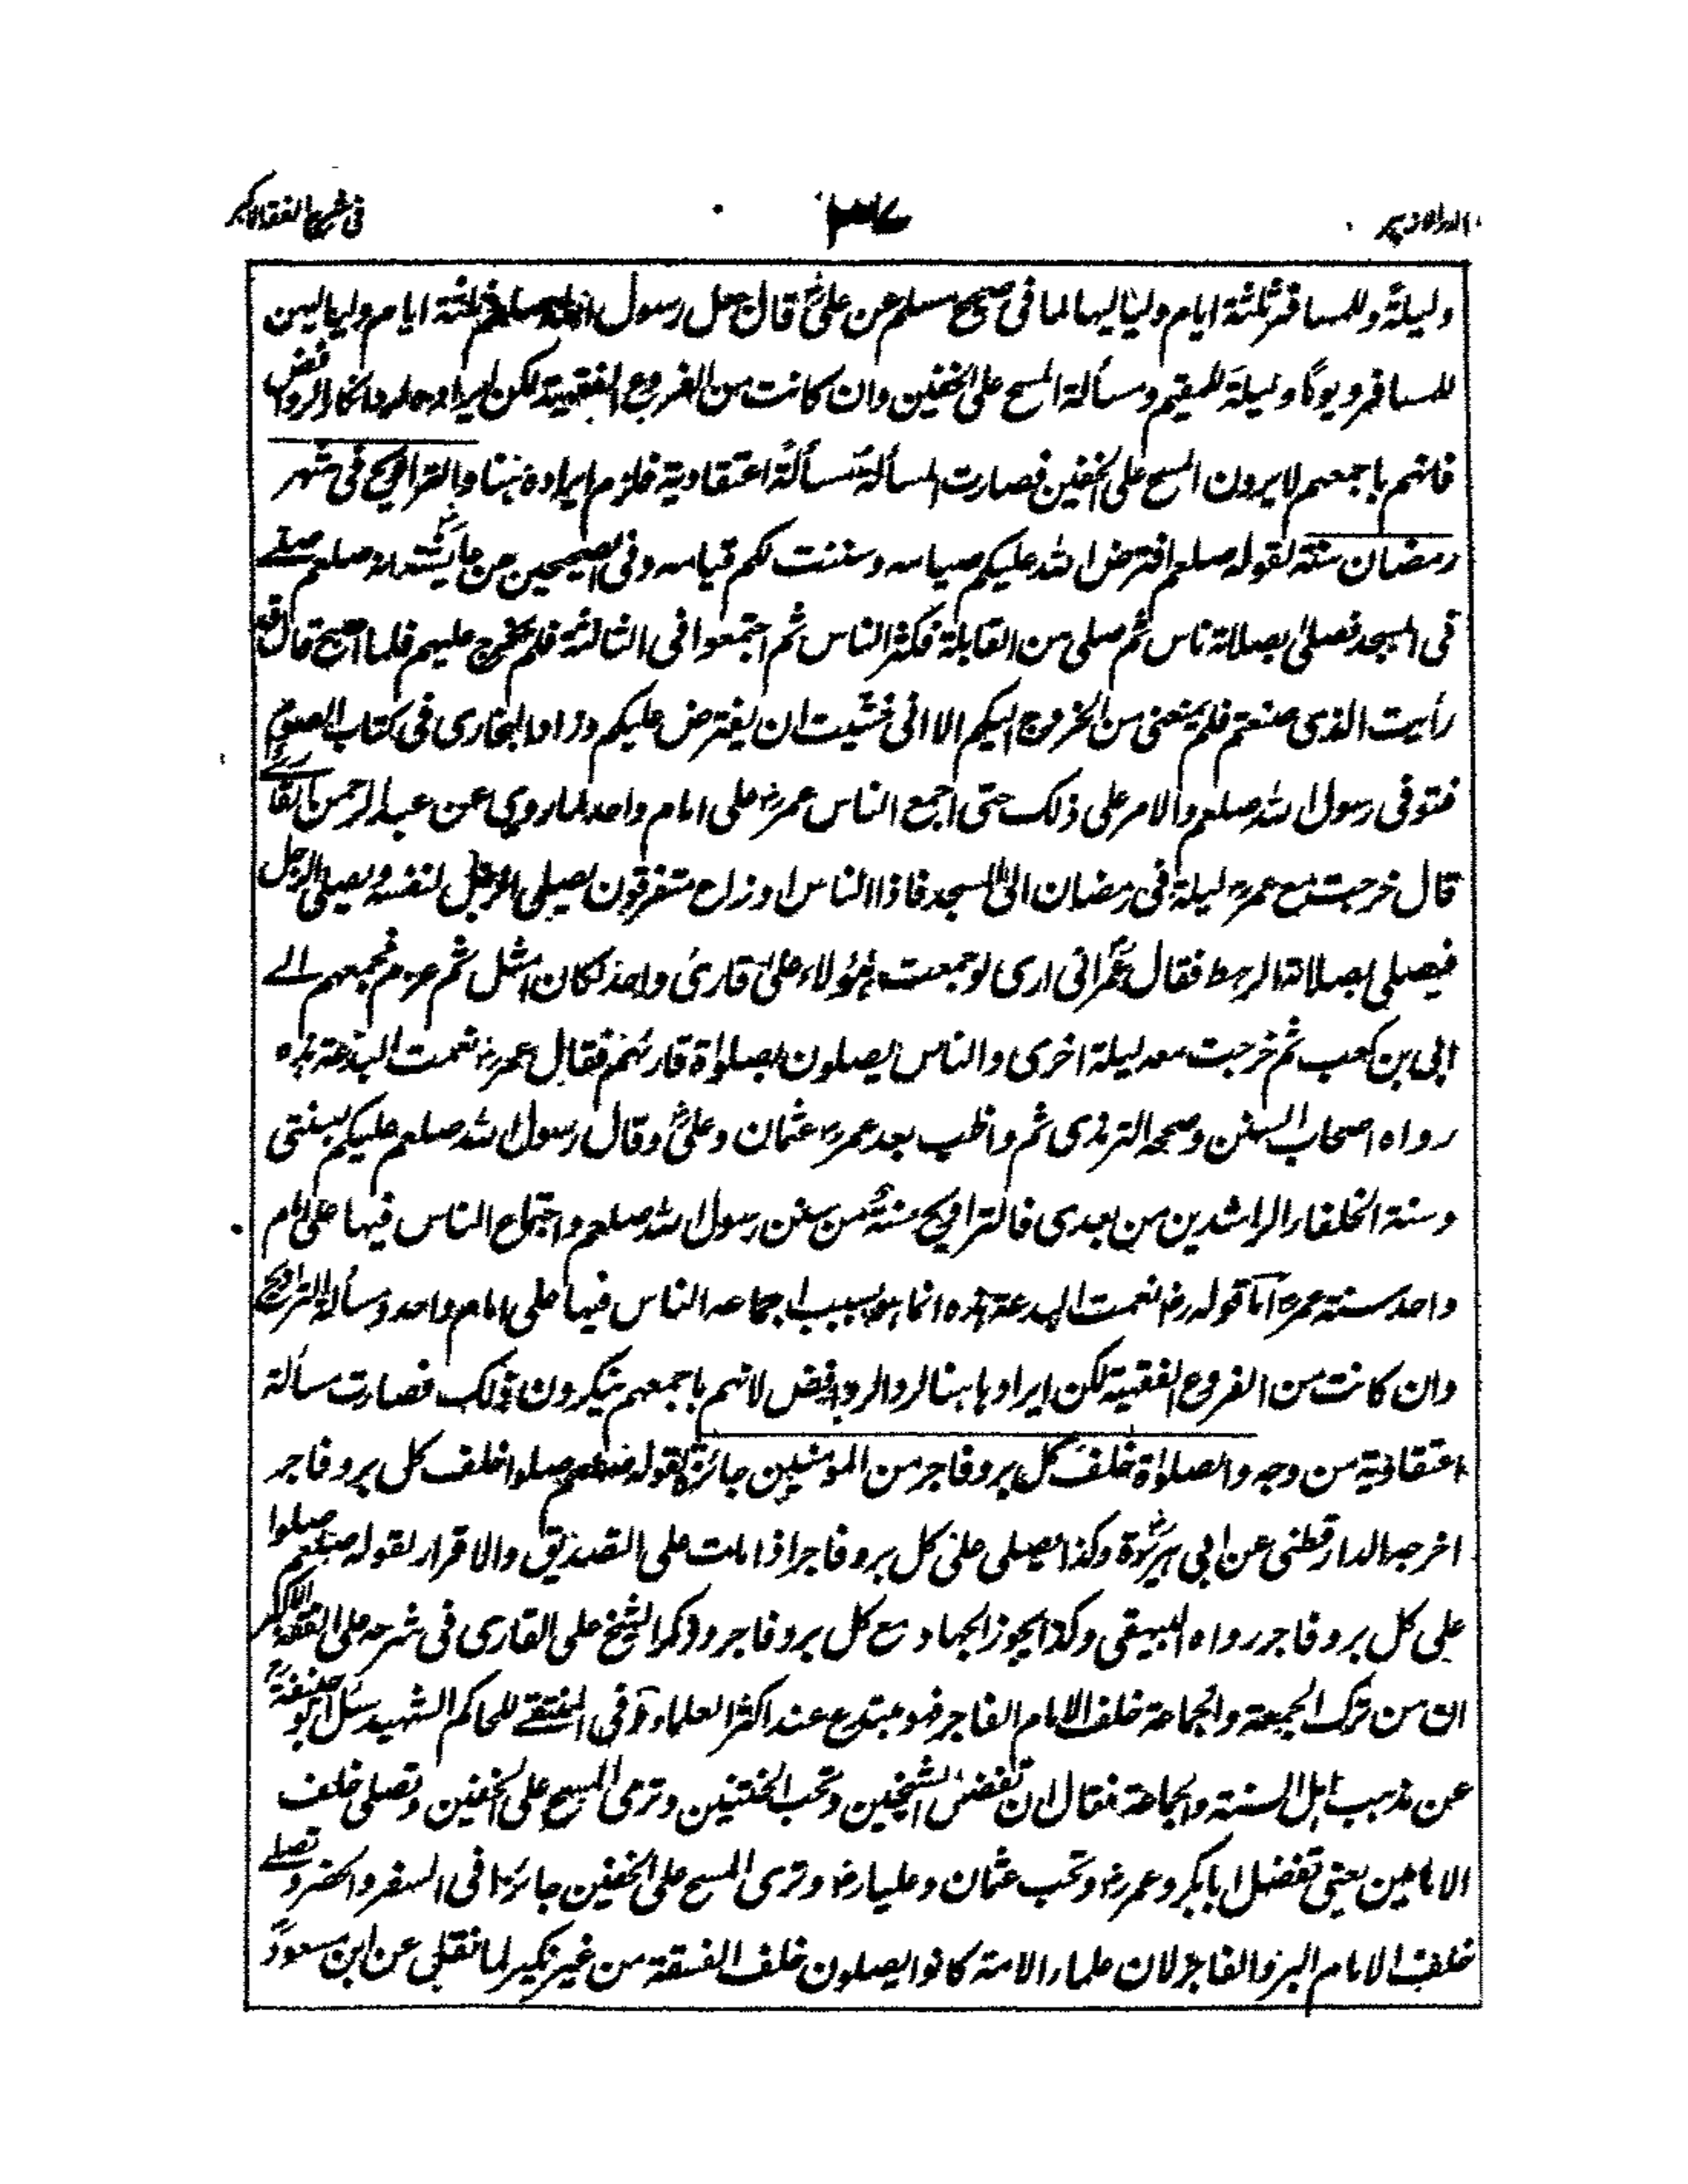 في شرح الفقه الاكبر
وليلة وللمسافر ثلثة ايام ولياليها لما في صحيح مسلم عن علي رض قال جعل رسول الله صلعم ثلثة ايام ولياليهن
للمسافر ويوما وليلة للمقيم ومسألة المسح على الخفين وان كانت من الفروع الفقهية لكن ايراده لرد انكار الروافض
فانهم باجمعهم لا يرون المسح على الخفين فصارت المسألة مسألة اعتقادية فلزم ايراده هنا والتراويح في شهر
رمضان سنة لقوله صلعم افترض الله عليكم صيامه وسننت لكم قيامه وفي الصحيحين عن عايشة رض انه صلعم صلے
في المسجد فصلى بصلاته ناس ثم صلى من القابلة فكثر الناس ثم اجتمعوا في الثالثة فلم يخرج عليهم فلما اصبح قال قد
رأيت الذي صنعتم فلم يمنعني من الخروج اليكم الا اني خشيت ان يفترض عليكم وزاد البخاري في كتاب الصوم
فتوفي رسول الله صلعم والامر على ذلك حتى اجمع الناس عمر رض على امام واحد لما روي عن عبد الرحمن القاري
قال خرجت مع عمر رض ليلة في رمضان الى المسجد فاذا الناس اوزاع متفرقون يصلي الرجل لنفسه ويصلي الرجل
فيصلي بصلاته الرهط فقال عمر رض اني ارى لو جمعت هؤلاء على قارئ واحد لكان امثل ثم عزم فجمعهم الے
ابي بن كعب ثم خرجت معه ليلة اخرى والناس يصلون بصلوٰة قارئهم فقال عمر رض نعمت البدعة هذه
رواه اصحاب السنن وصححه الترمذي ثم واظب بعد عمر رض عثمان وعلي رض وقال رسول الله صلعم عليكم بسنتي
وسنة الخلفاء الراشدين من بعدي فالتراويح سنة من سنن رسول الله صلعم واجتماع الناس فيها على امام
واحد سنة عمر رض اما قوله رض نعمت البدعة هذه انما هو بسبب اجماعه الناس فيها على امام واحد ومسألة التراويح
وان كانت من الفروع الفقهية لكن ايرادها هنا لرد الروافض لانهم باجمعهم ينكرون ذلك فصارت مسألة
اعتقادية من وجه والصلوٰة خلف كل بر وفاجر من المؤمنين جائزة لقوله صلعم صلوا خلف كل بر وفاجر
اخرجه الدارقطني عن ابي هريرة رض وكذا يصلى على كل بر وفاجر اذا مات على التصديق والاقرار لقوله صلعم صلوا
على كل بر وفاجر رواه البيهقي وكذا يجوز الجهاد مع كل بر وفاجر وذكر الشيخ علي القاري في شرحه على الفقه الاكبر
ان من ترك الجمعة والجماعة خلف الامام الفاجر فهو مبتدع عند اكثر العلماء وفي المنتقے للحاكم الشهيد سئل ابو حنيفة رح
عن مذهب اهل السنة والجماعة فقال ان تفضل الشيخين وتحب الختنين وترى المسح على الخفين وتصلي خلف
الامامين يعني تفضل ابا بكر وعمر رض وتحب عثمان وعليا رض وترى المسح على الخفين جائزا في السفر والحضر وتصلے
خلف الامام البر والفاجر لان علماء الامة كانوا يصلون خلف الفسقة من غير نكير لما نقل عن ابن مسعود رض